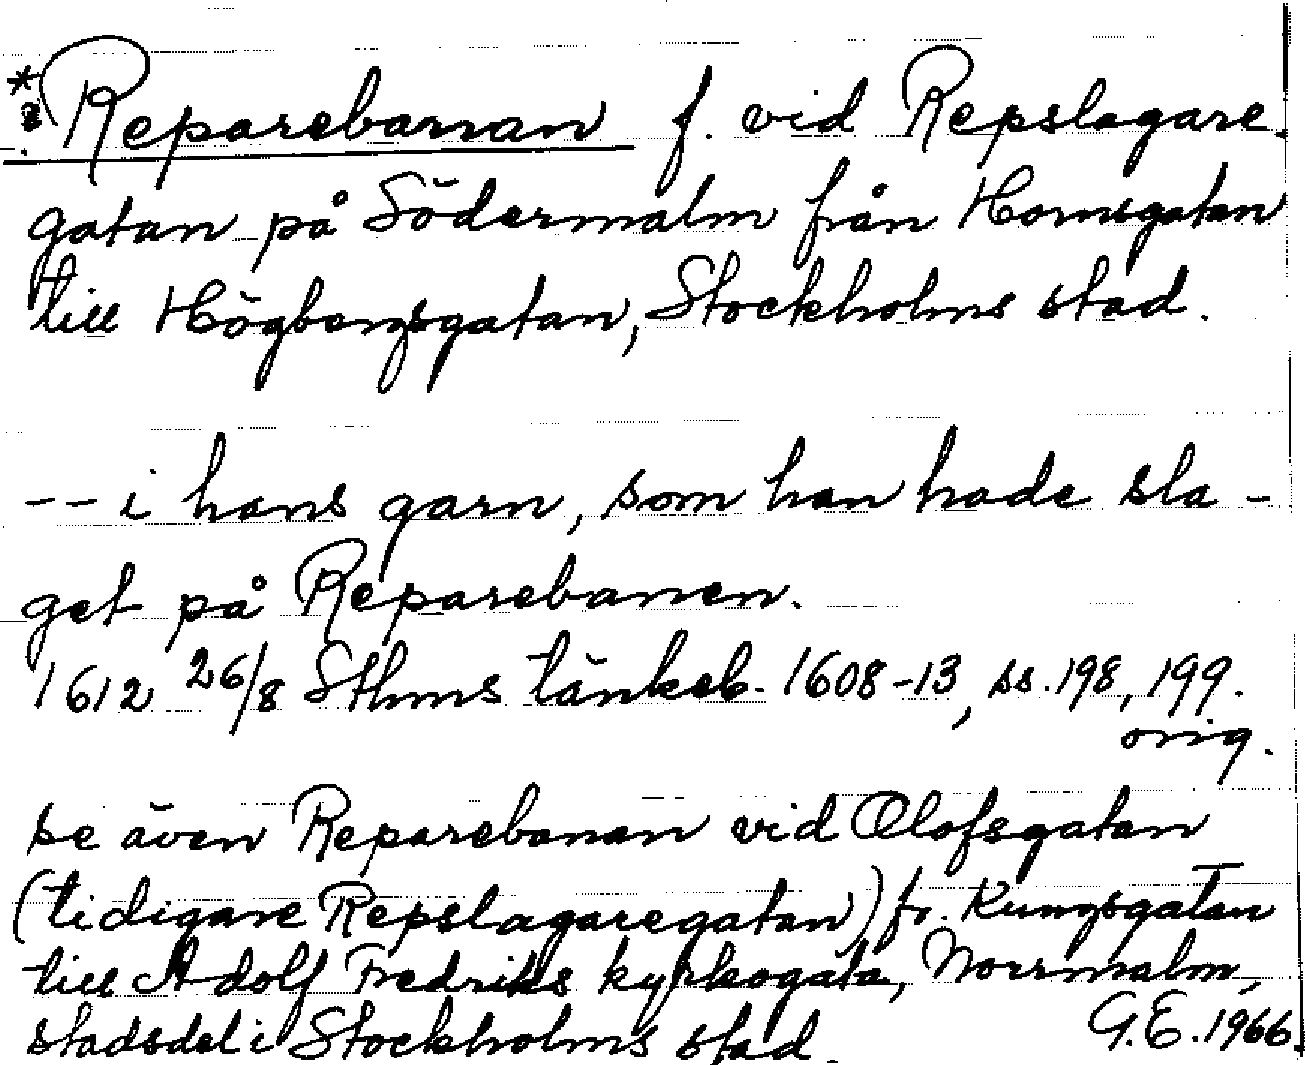 *? Reparebanan f. vid Repslagare-
gatan på Södermalm från Hornsgatan
till Högbergsgatan, Stockholms stad.
-- i hans garn, som han hade sla-
get på Reparebanen.
1612 26/8 Sthms tänkeb. 1608-13, ss. 198, 199.
orig.
se även Reparebanan vid Olofsgatan
(tidigare Repslagaregatan) fr. Kungsgatan
till Adolf Fredriks kyrkogata, Norrmalm,
stadsdel i Stockholms stad.
G.E. 1966.